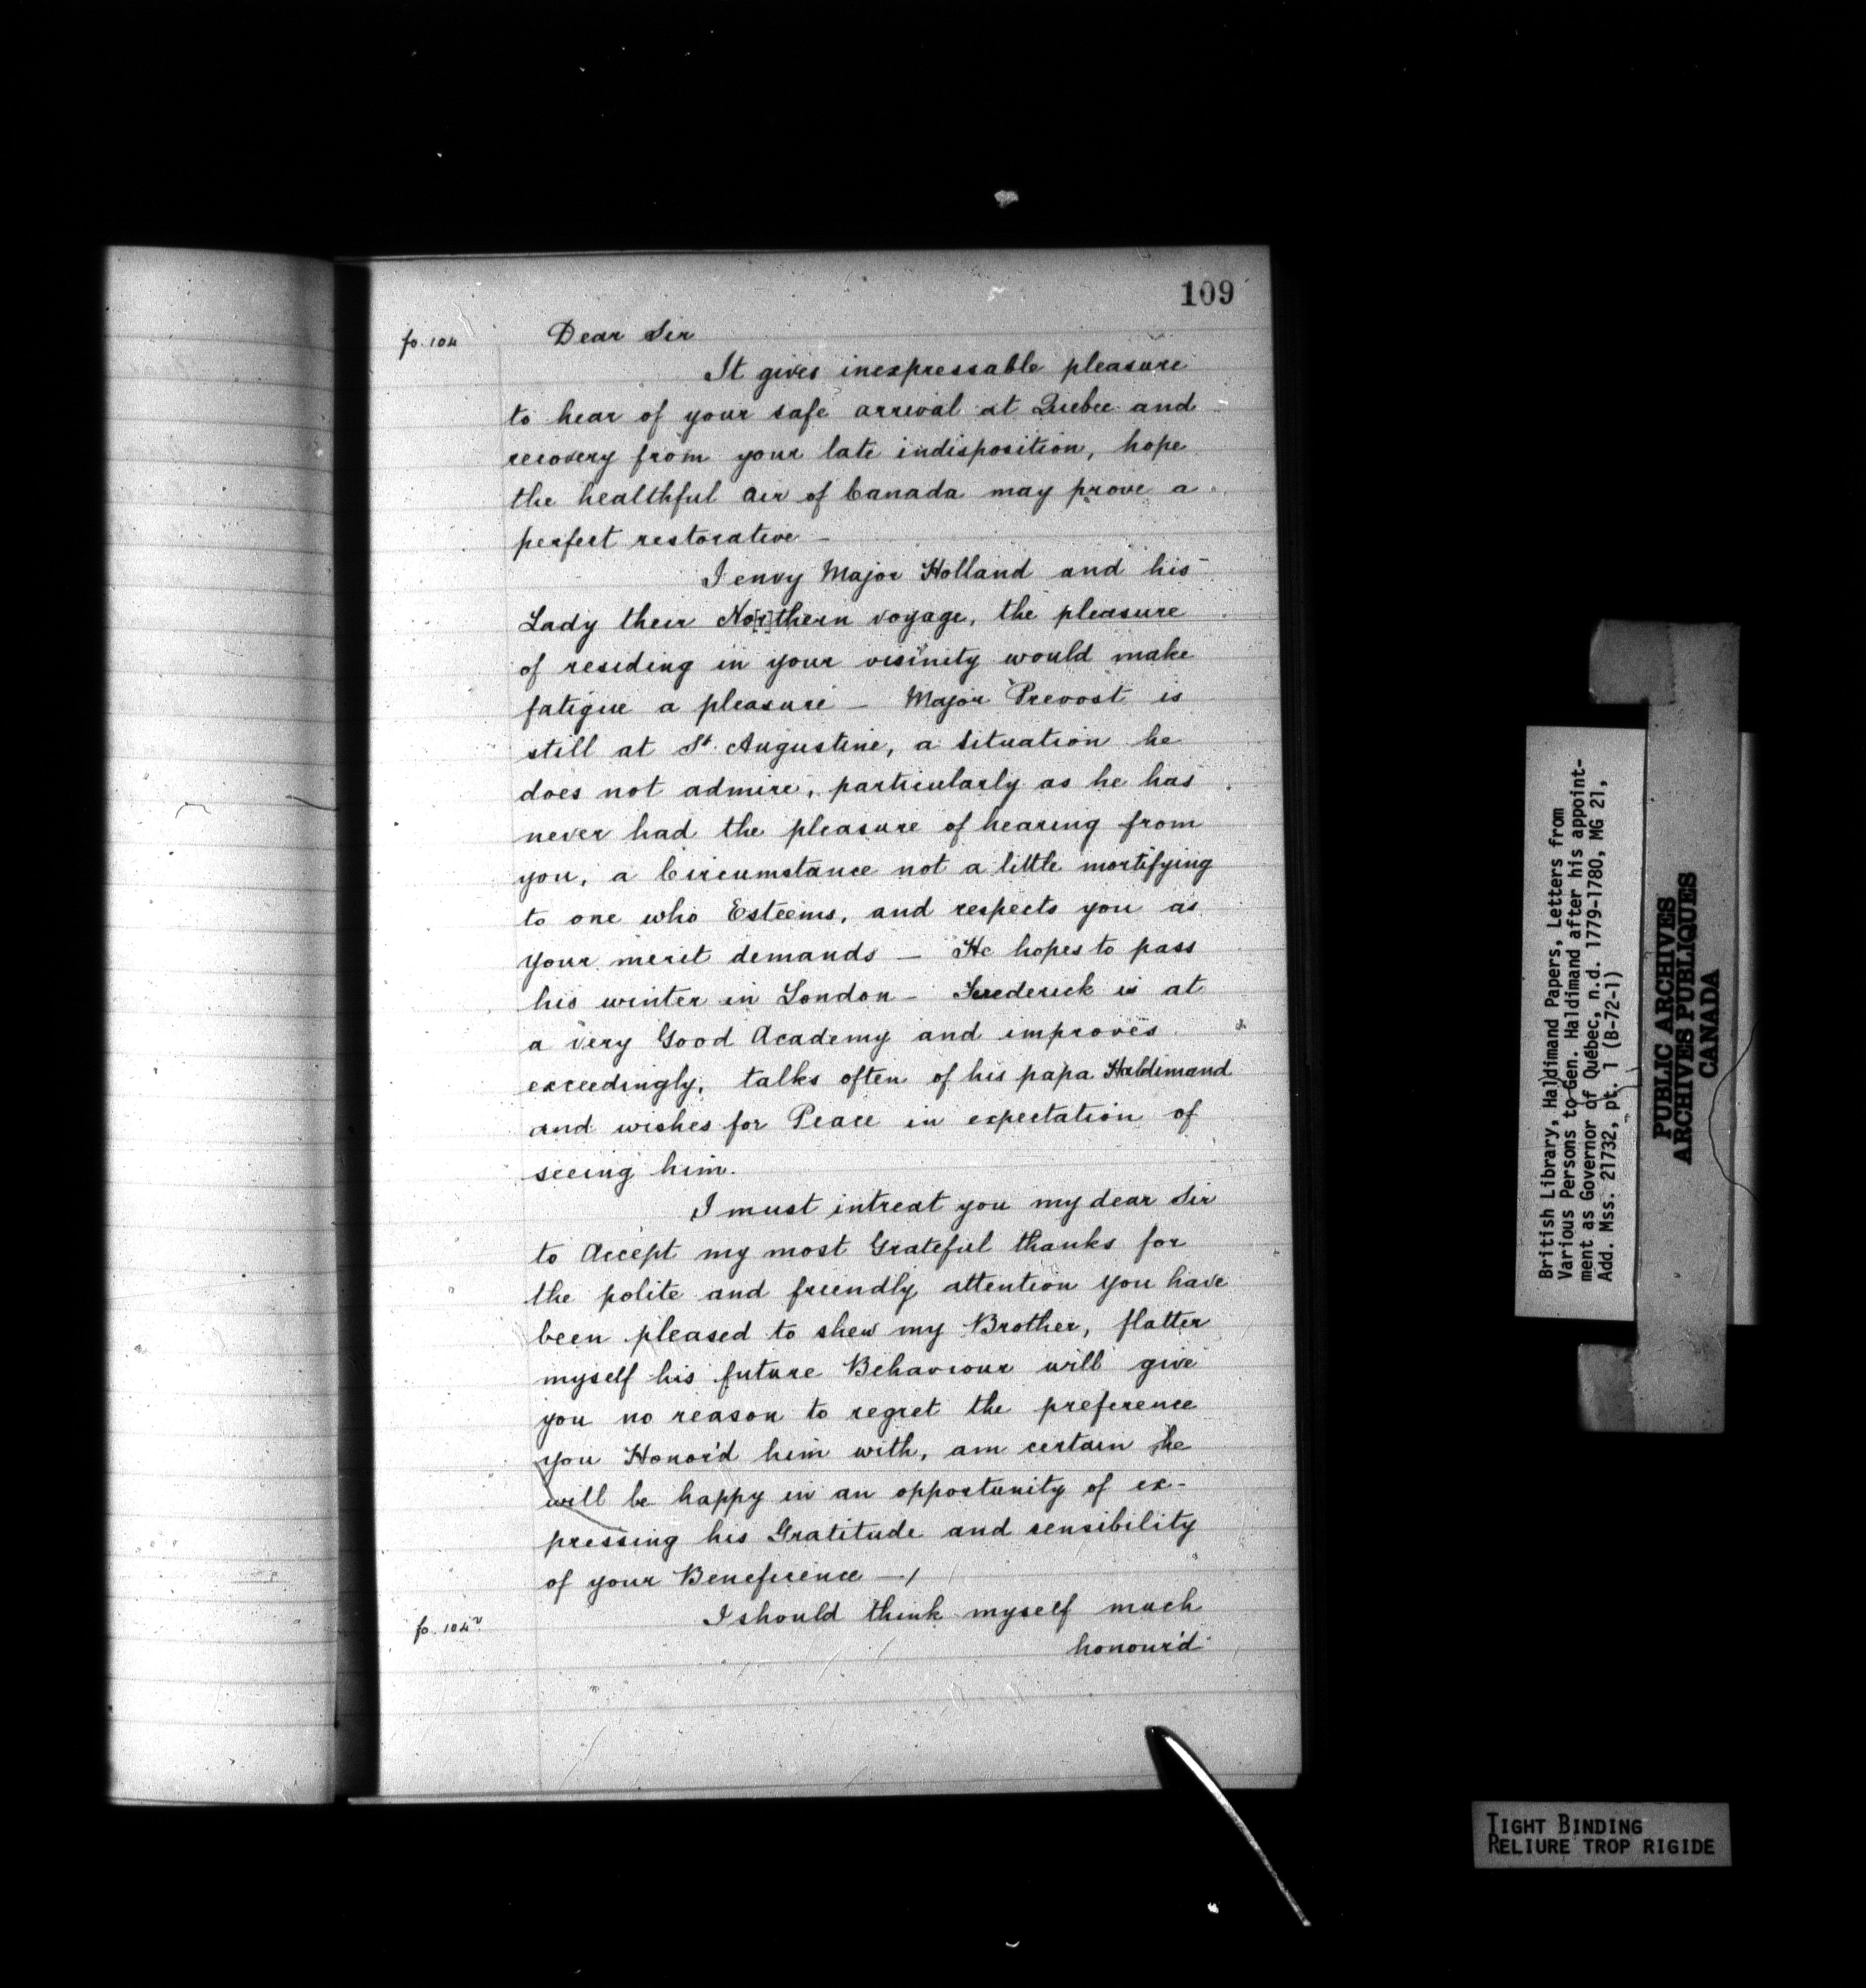 109
fo. 104
Dear Sir
It gives inexpressable pleasure
to hear of your safe arrival at Quebec and
recovery from your late indisposition, hope
the healthful air of Canada may prove a
perfect restorative –
I envy Major Holland and his
Lady their No[r]thern voyage, the pleasure
of residing in your visinity would make
fatigue a pleasure – Major Prevost is
still at St. Augustine, a situation he
does not admire, particularly as he has
never had the pleasure of hearing from
you, a Circumstance not a little mortifying
to one who Esteems, and respects you as
your merit demands – He hopes to pass
his winter in London – Frederick is at
a very Good Academy and improves
exceedingly, talks often of his papa Haldimand
and wishes for Peace in expectation of
seeing him.
I must intreat you my dear Sir
to Accept my most Grateful thanks for
the polite and friendly attention you have
been pleased to shew my Brother, flatter
myself his future Behaviour will give
you no reason to regret the preference
you Honor'd him with, am certain he
will be happy in an opportunity of ex-
pressing his Gratitude and sensibility
of your Beneficence –/
fo. 104v
I should think myself much
honour'd
British Library, Haldimand Papers, Letters from
Various Persons to Gen. Haldimand after his appoint-
ment as Governor of Québec, n.d. 1779-1780, MG 21,
Add. Mss. 21732, pt. 1 (B-72-1)
PUBLIC ARCHIVES
ARCHIVES PUBLIQUES
CANADA
TIGHT BINDING
RELIURE TROP RIGIDE